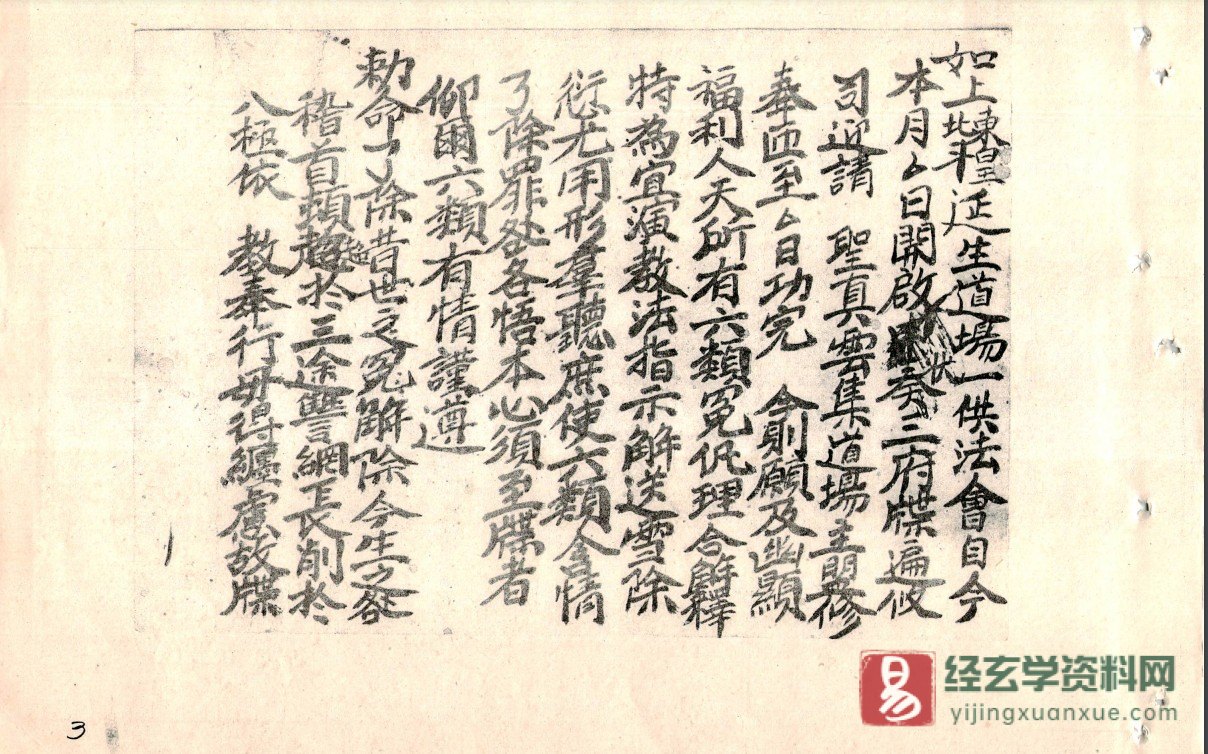 如上東皇北斗延生道場一供法會自今
本月厶日開啟状奏三府牒遍攸
司迎請 聖真雲集道場主盟修
奉迊至厶日功完 今則願及幽顯
福利人天所有六類冤仇理合解釋
特為宣演教法指示解送雪除
愆尤用形羣聽庶使六類含情
了除罪咎各悟本心須至牒者
仰爾六類有情謹遵
勅命了除昔世之冤解除今生之咎
稽首頓超於三途讐網長削於
八極依 教奉行毋得纏慮故牒
3
易
经玄学资料网
yijingxuanxue.com